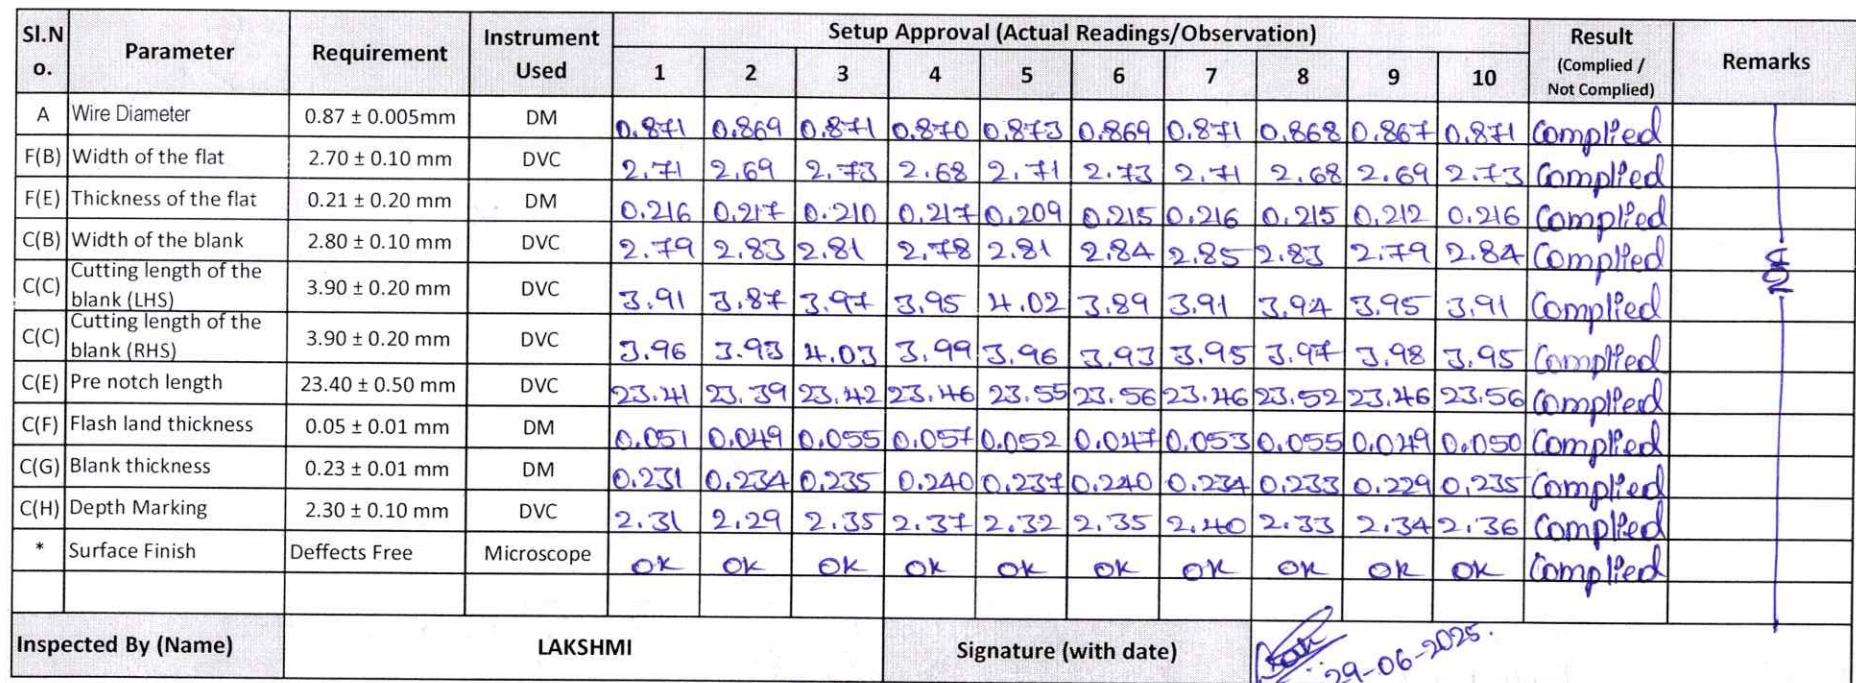 Sl.No. Parameter Requirement Instrument Used Setup Approval (Actual Readings/Observation) Result (Complied / Not Complied) Remarks
1 2 3 4 5 6 7 8 9 10
A Wire Diameter 0.87 ± 0.005mm DM 0.871 0.869 0.871 0.870 0.873 0.869 0.871 0.868 0.867 0.871 Complied
F(B) Width of the flat 2.70 ± 0.10 mm DVC 2.71 2.69 2.73 2.68 2.71 2.73 2.71 2.68 2.69 2.73 Complied
F(E) Thickness of the flat 0.21 ± 0.20 mm DM 0.216 0.217 0.210 0.217 0.209 0.215 0.216 0.215 0.212 0.216 Complied
C(B) Width of the blank 2.80 ± 0.10 mm DVC 2.79 2.83 2.81 2.78 2.81 2.84 2.85 2.83 2.79 2.84 Complied
C(C) Cutting length of the blank (LHS) 3.90 ± 0.20 mm DVC 3.91 3.87 3.97 3.95 4.02 3.89 3.91 3.94 3.95 3.91 Complied
C(C) Cutting length of the blank (RHS) 3.90 ± 0.20 mm DVC 3.96 3.93 4.03 3.99 3.96 3.93 3.95 3.97 3.98 3.95 Complied
C(E) Pre notch length 23.40 ± 0.50 mm DVC 23.41 23.39 23.42 23.46 23.55 23.56 23.46 23.52 23.46 23.56 Complied
C(F) Flash land thickness 0.05 ± 0.01 mm DM 0.051 0.049 0.055 0.057 0.052 0.047 0.053 0.055 0.049 0.050 Complied
C(G) Blank thickness 0.23 ± 0.01 mm DM 0.231 0.234 0.235 0.240 0.237 0.240 0.234 0.233 0.229 0.235 Complied
C(H) Depth Marking 2.30 ± 0.10 mm DVC 2.31 2.29 2.35 2.37 2.32 2.35 2.40 2.33 2.34 2.36 Complied
* Surface Finish Deffects Free Microscope OK OK OK OK OK OK OK OK OK OK Complied
Inspected By (Name) LAKSHMI Signature (with date) 29-06-2025.